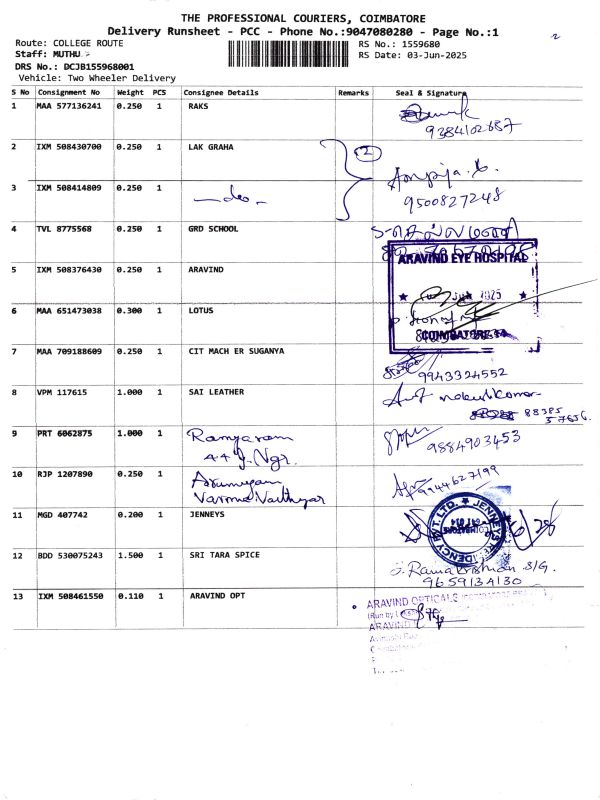 THE PROFESSIONAL COURIERS, COIMBATORE
Delivery Runsheet - PCC - Phone No.:9047080280 - Page No.:1
2
Route: COLLEGE ROUTE
RS No.: 1559680
Staff: MUTHU
RS Date: 03-Jun-2025
DRS No.: DCJB155968001
Vehicle: Two Wheeler Delivery
S No Consignment No Weight PCS Consignee Details Remarks Seal & Signature
1 MAA 577136241 0.250 1 RAKS
9384102687
2 IXM 508430700 0.250 1 LAK GRAHA 2
3 IXM 508414809 0.250 1 —do—
9500827248
4 TVL 8775568 0.250 1 GRD SCHOOL
ARAVIND EYE HOSPITAL
5 IXM 508376430 0.250 1 ARAVIND
JUN 2025
6 MAA 651473038 0.300 1 LOTUS
COIMBATORE-14
7 MAA 709188609 0.250 1 CIT MACH ER SUGANYA
9943324552
8 VPM 117615 1.000 1 SAI LEATHER
88385
57656
9 PRT 6062875 1.000 1 Ramyaram
44 J. Ngr.
9884903453
10 RJP 1207890 0.250 1 Arumugam
Varma Vaithyar
9944627199
11 MGD 407742 0.200 1 JENNEYS
JENNEYS RESIDENCY PVT. LTD.
COIMBATORE
641 014
12 BDD 530075243 1.500 1 SRI TARA SPICE
J. Ramakrishnan S/G.
9659134130
13 IXM 508461550 0.110 1 ARAVIND OPT
ARAVIND OPTICALS
(Run by
ARAVIND